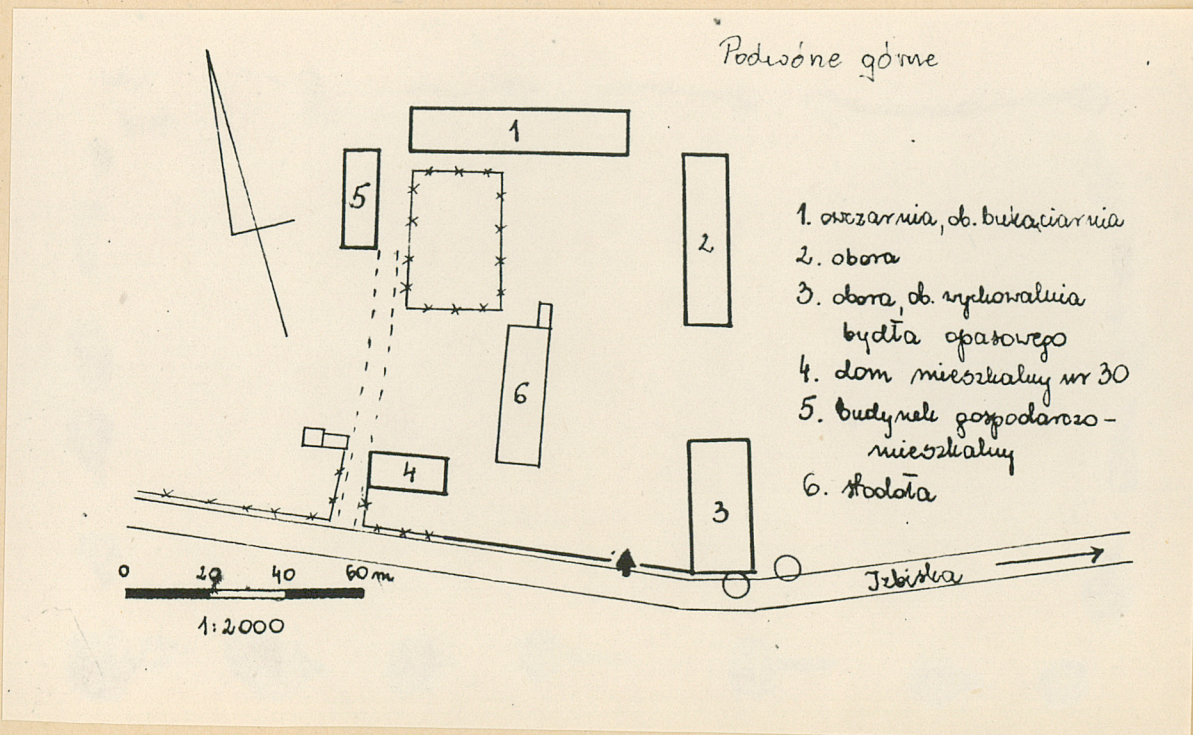 Podwórze górne
1
5
2
1. owczarnia, ob. bukaciarnia
2. obora
3. obora, ob. wychowalnia
bydła opasowego
4. dom mieszkalny nr 30
5. budynek gospodarczo-
mieszkalny
6. stodoła
6
4
3
0 20 40 60 m
1:2000
Izbiska